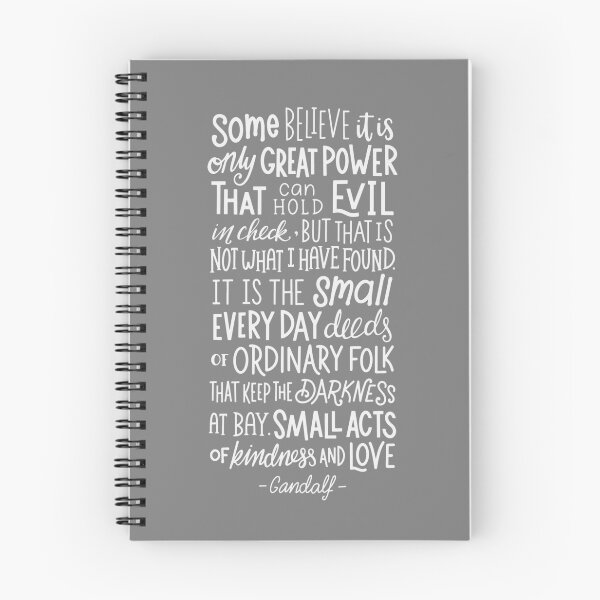 Some BELIEVE it is
only GREAT POWER
THAT can HOLD EVIL
in check, BUT THAT IS
NOT WHAT I HAVE FOUND.
IT IS THE Small
EVERY DAY deeds
OF ORDINARY FOLK
THAT KEEP THE DARKNESS
AT BAY. SMALL ACTS
OF kindness AND LOVE
- Gandalf -